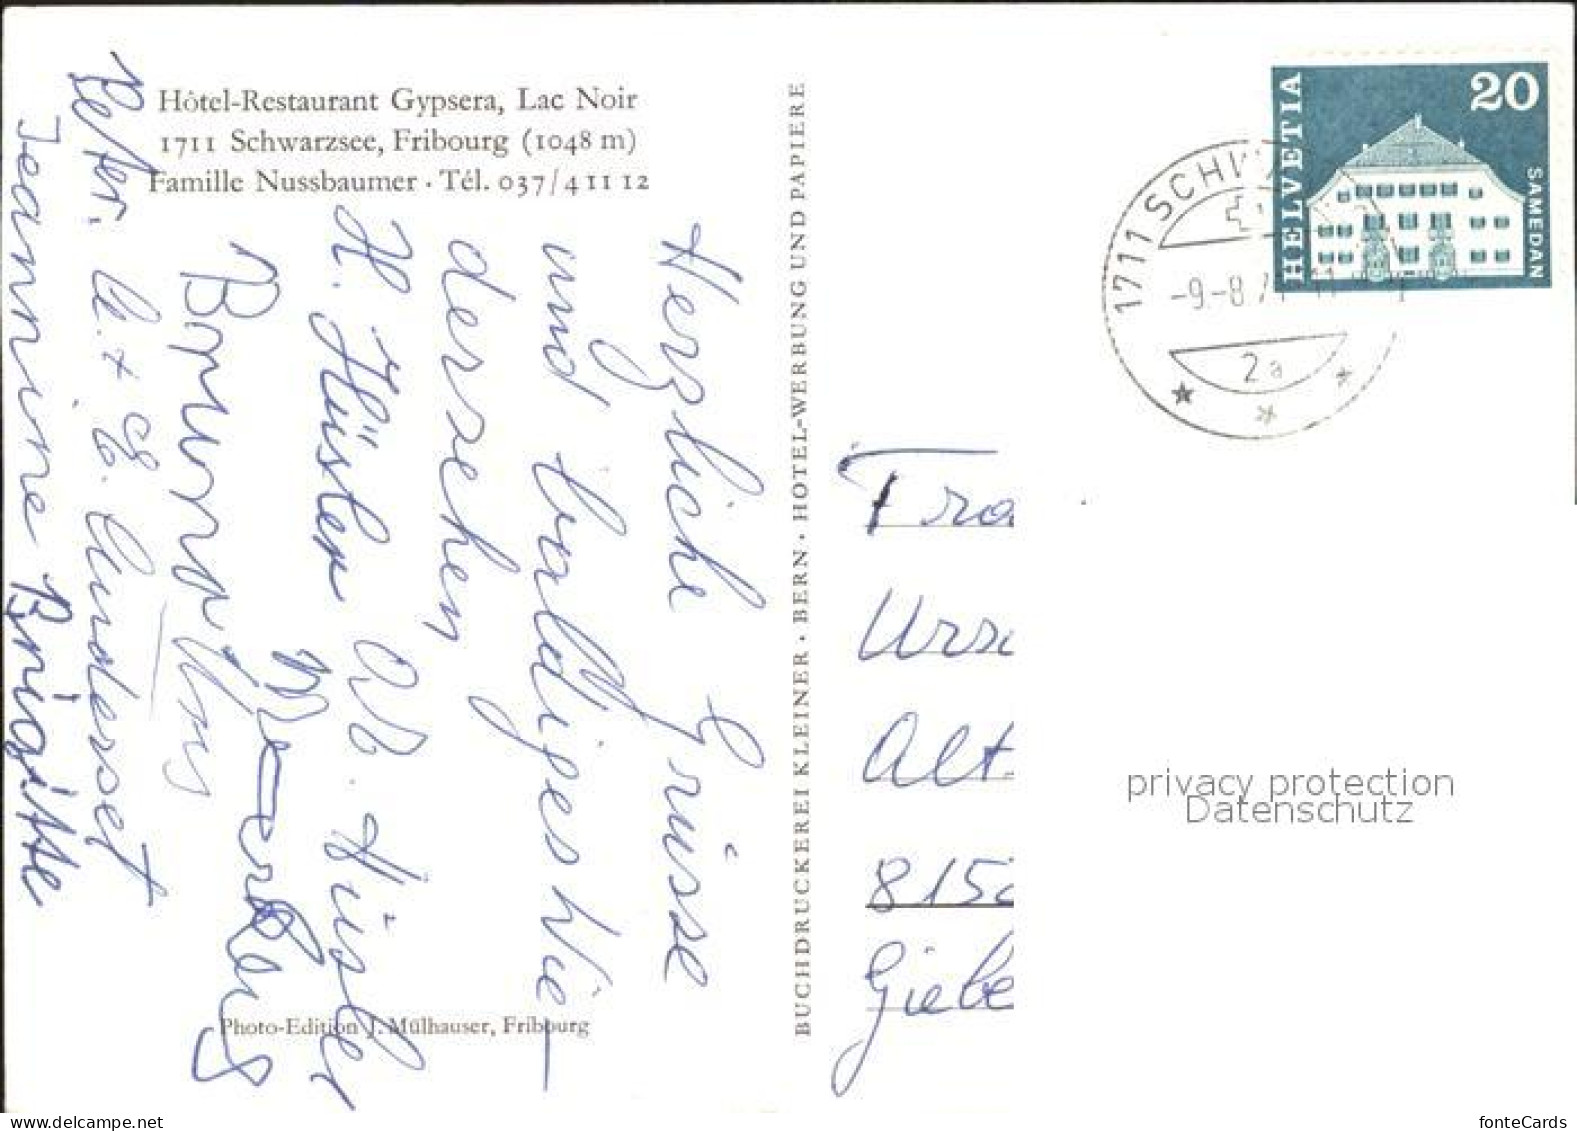 Hôtel-Restaurant Gypsera, Lac Noir
1711 Schwarzsee, Fribourg (1048 m)
Famille Nussbaumer · Tél. 037/4 11 12
Herzliche Grüsse
und baldiges Wie-
dersehen
H. Hüsler
Peter.
Jeannine Brigitte
Photo-Edition J. Mülhauser, Fribourg
BUCHDRUCKEREI KLEINER · BERN · HOTEL-WERBUNG UND PAPIERE
HELVETIA
20
SAMEDAN
1711 SCHW
-9.-8.7
2a
Fra
Urs
Alt
815
Giebe
privacy protection
Datenschutz
www.delcampe.net
fonteCards